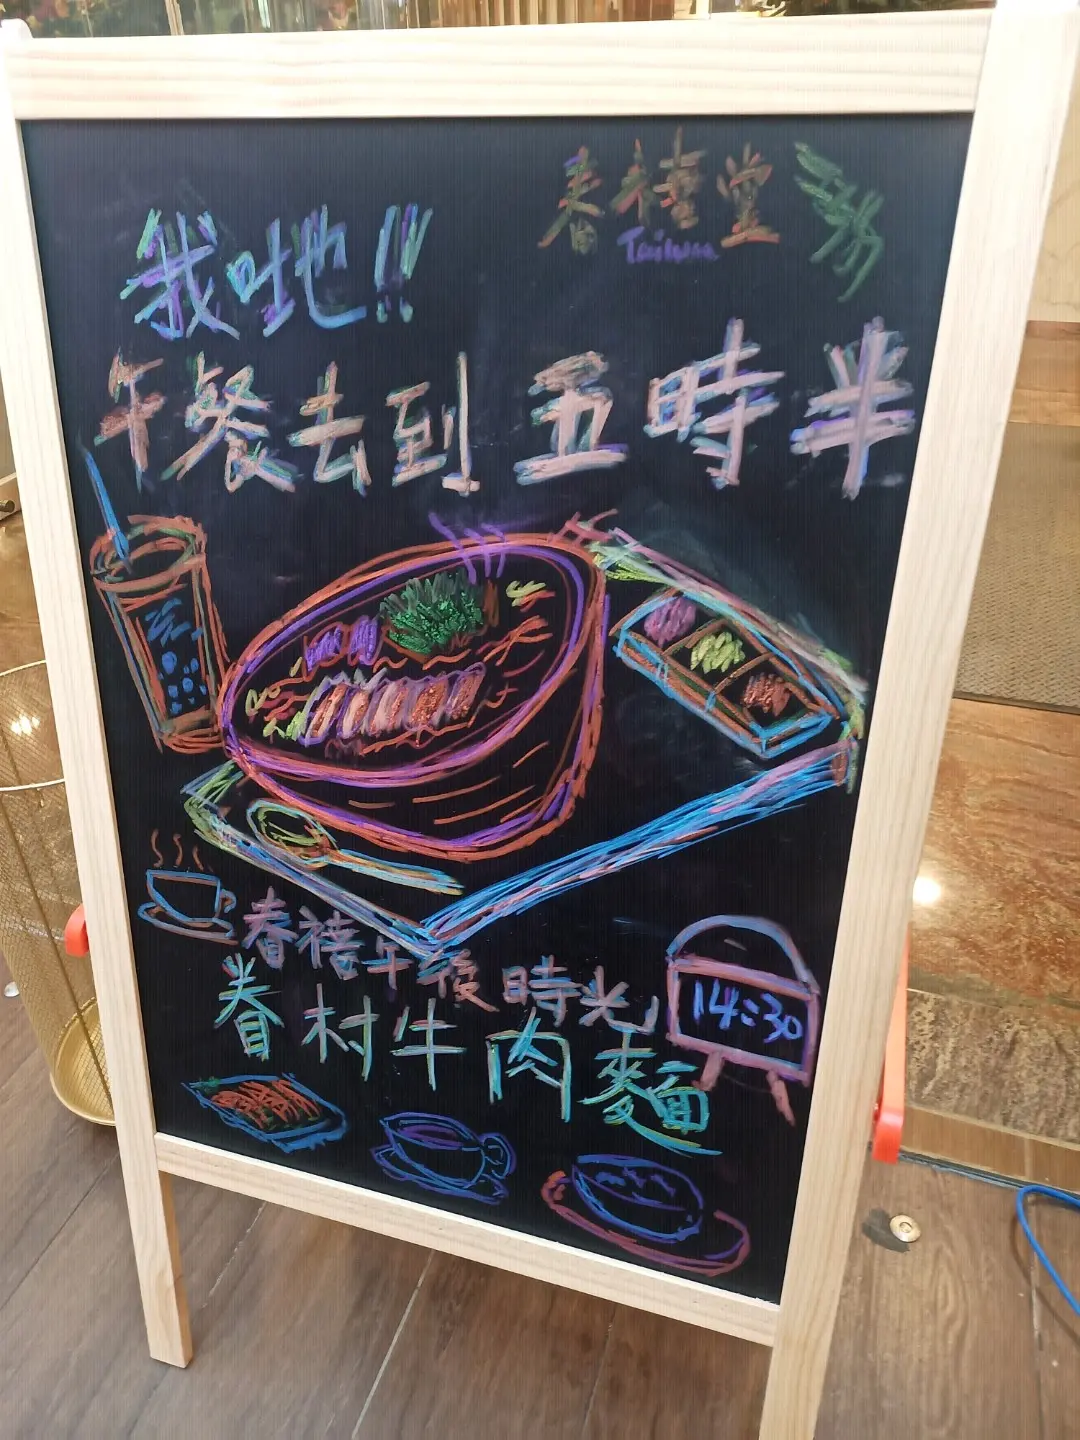 春禧堂
Taiwan
我哋地!!
午餐去到五時半
春禧午後時光
14:30
眷村牛肉麵